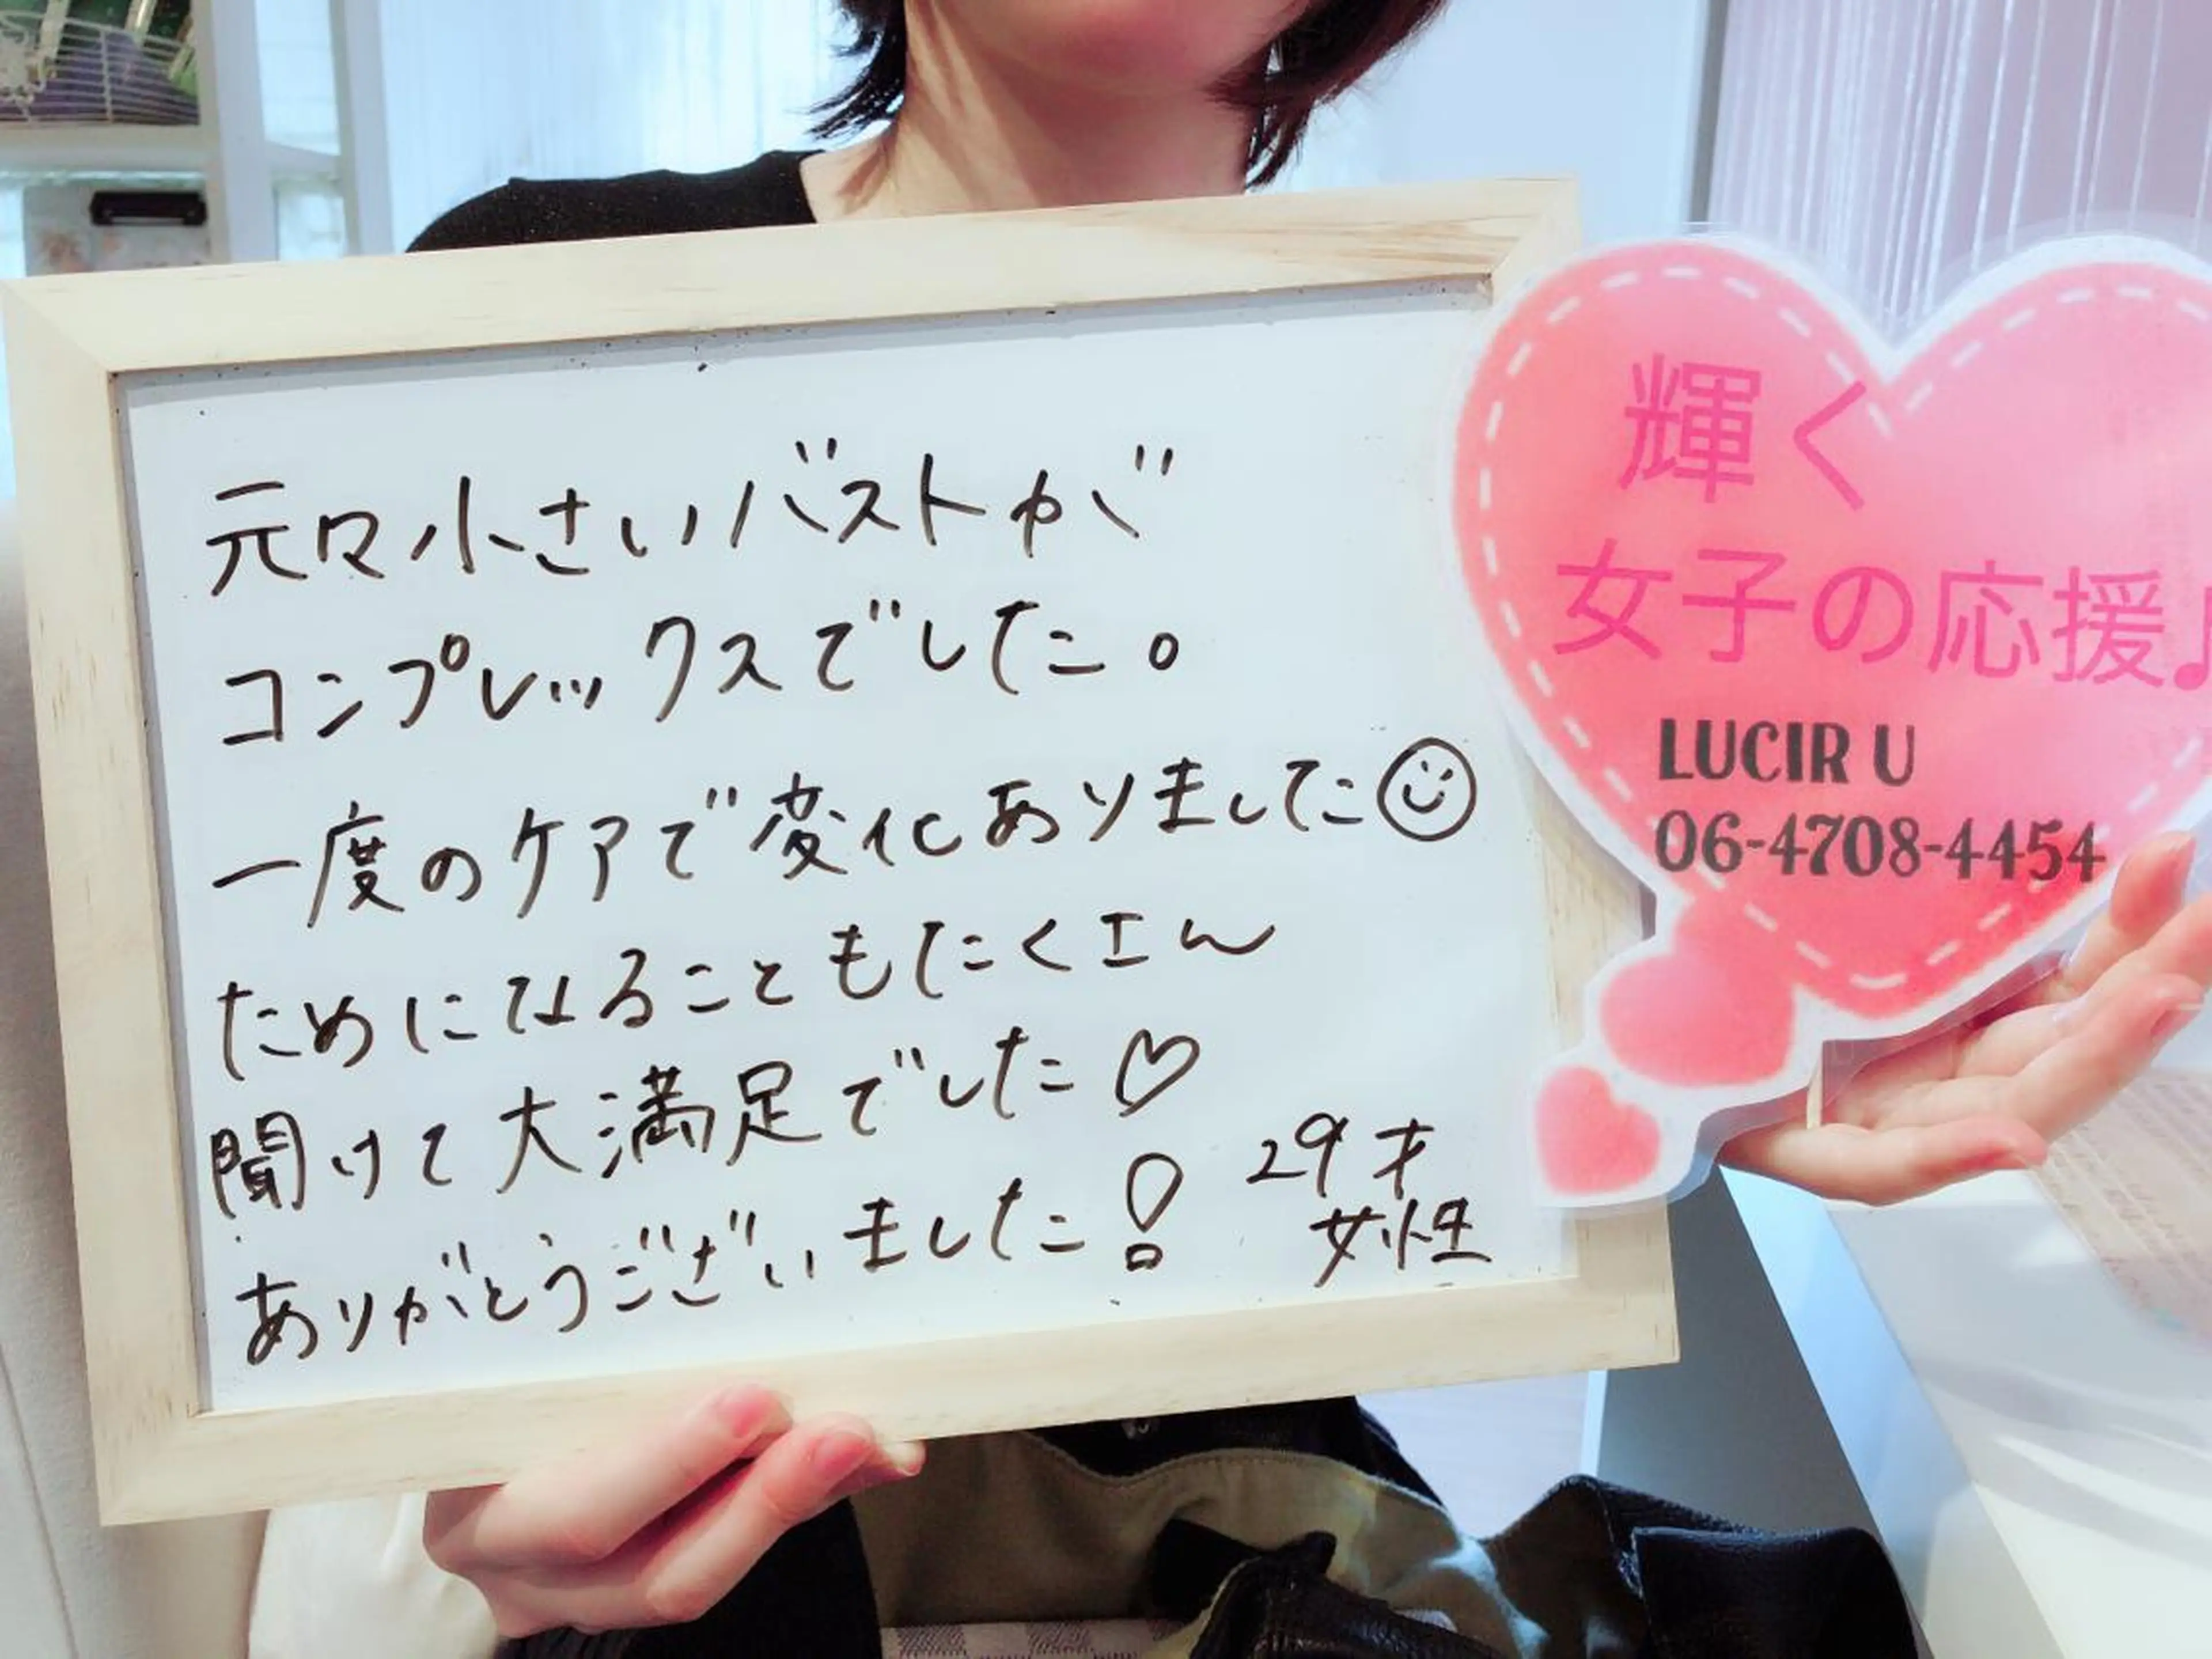 元々小さいバストが
コンプレックスでした。
一度のケアで変化ありました
ためになることもたくさん
聞けて大満足でした♡
ありがとうございました!
29才
女性
輝く
女子の応援♪
LUCIR U
06-4708-4454